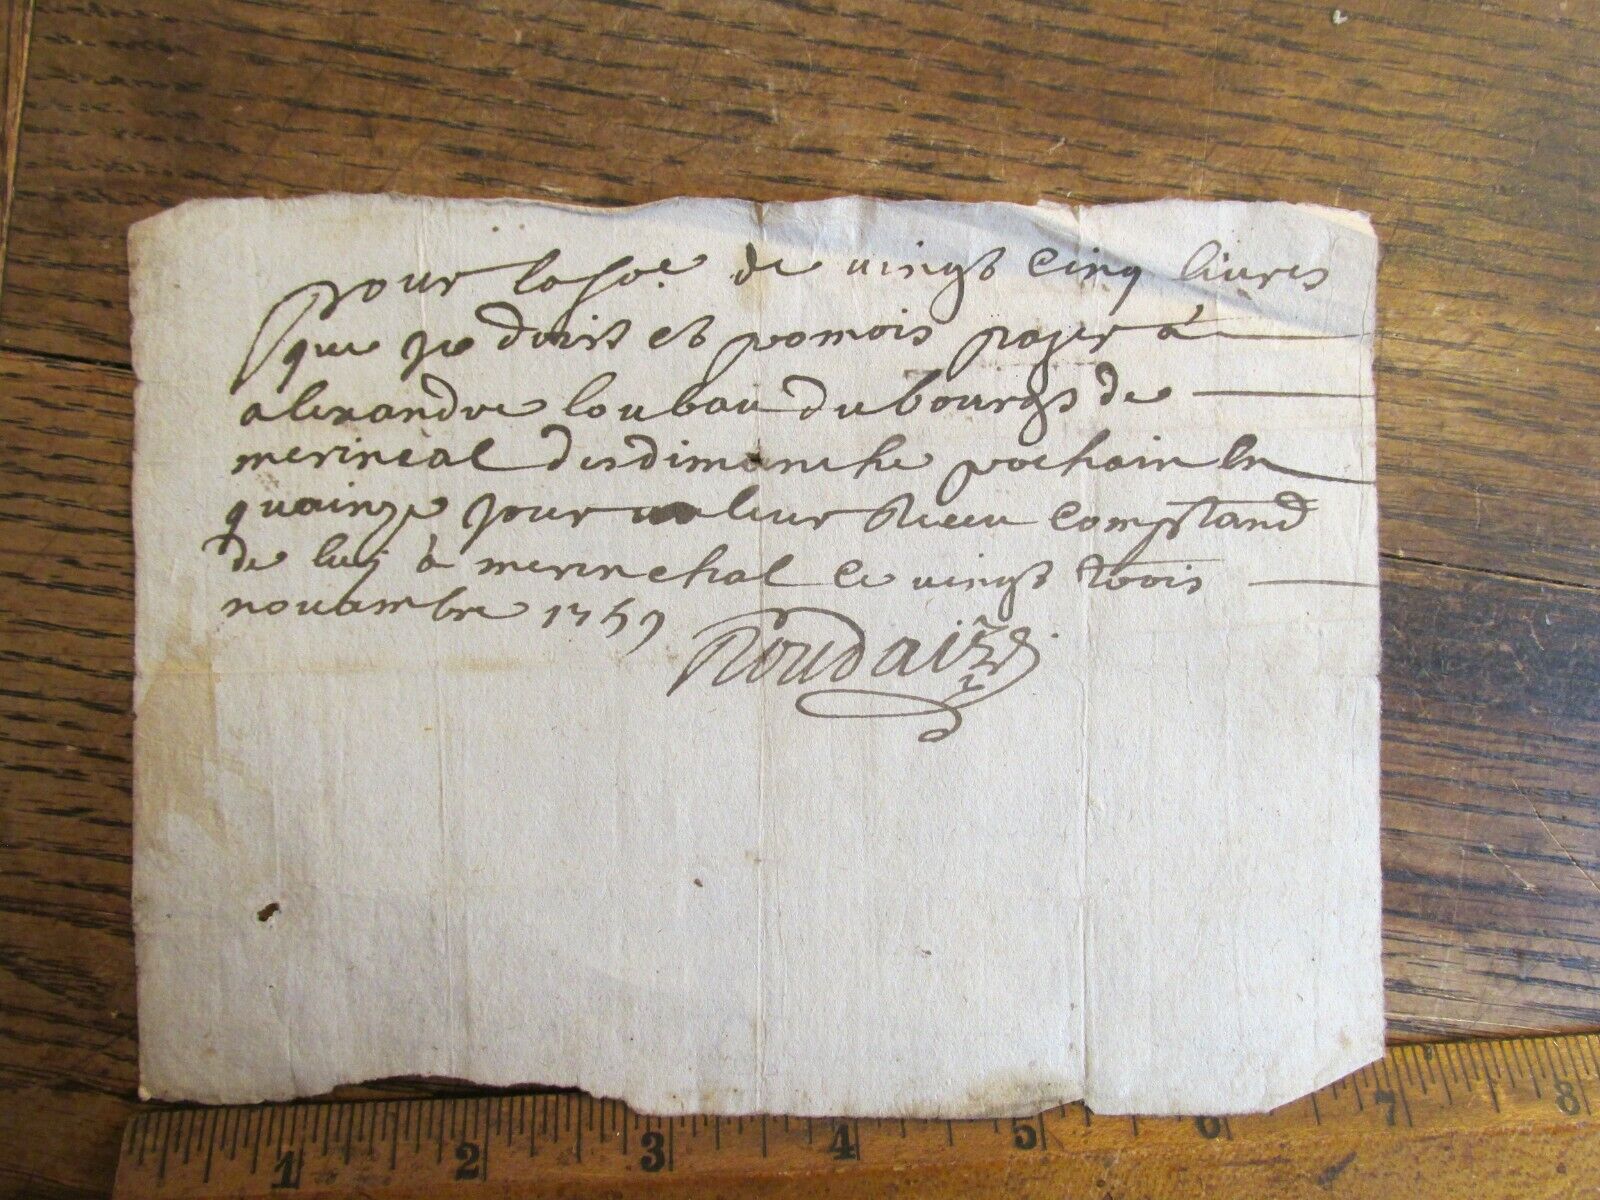 pour la soe de vingt cinq livres
que je doist et pomois payer à
alexandre loubau du bourgt de
merincal des dimanche pochain en
quainze jour valeur Receu comptand
de luy à merinchal ce vingt trois
nouambre 1759
Roudaire
1 2 3 4 5 6 7 8